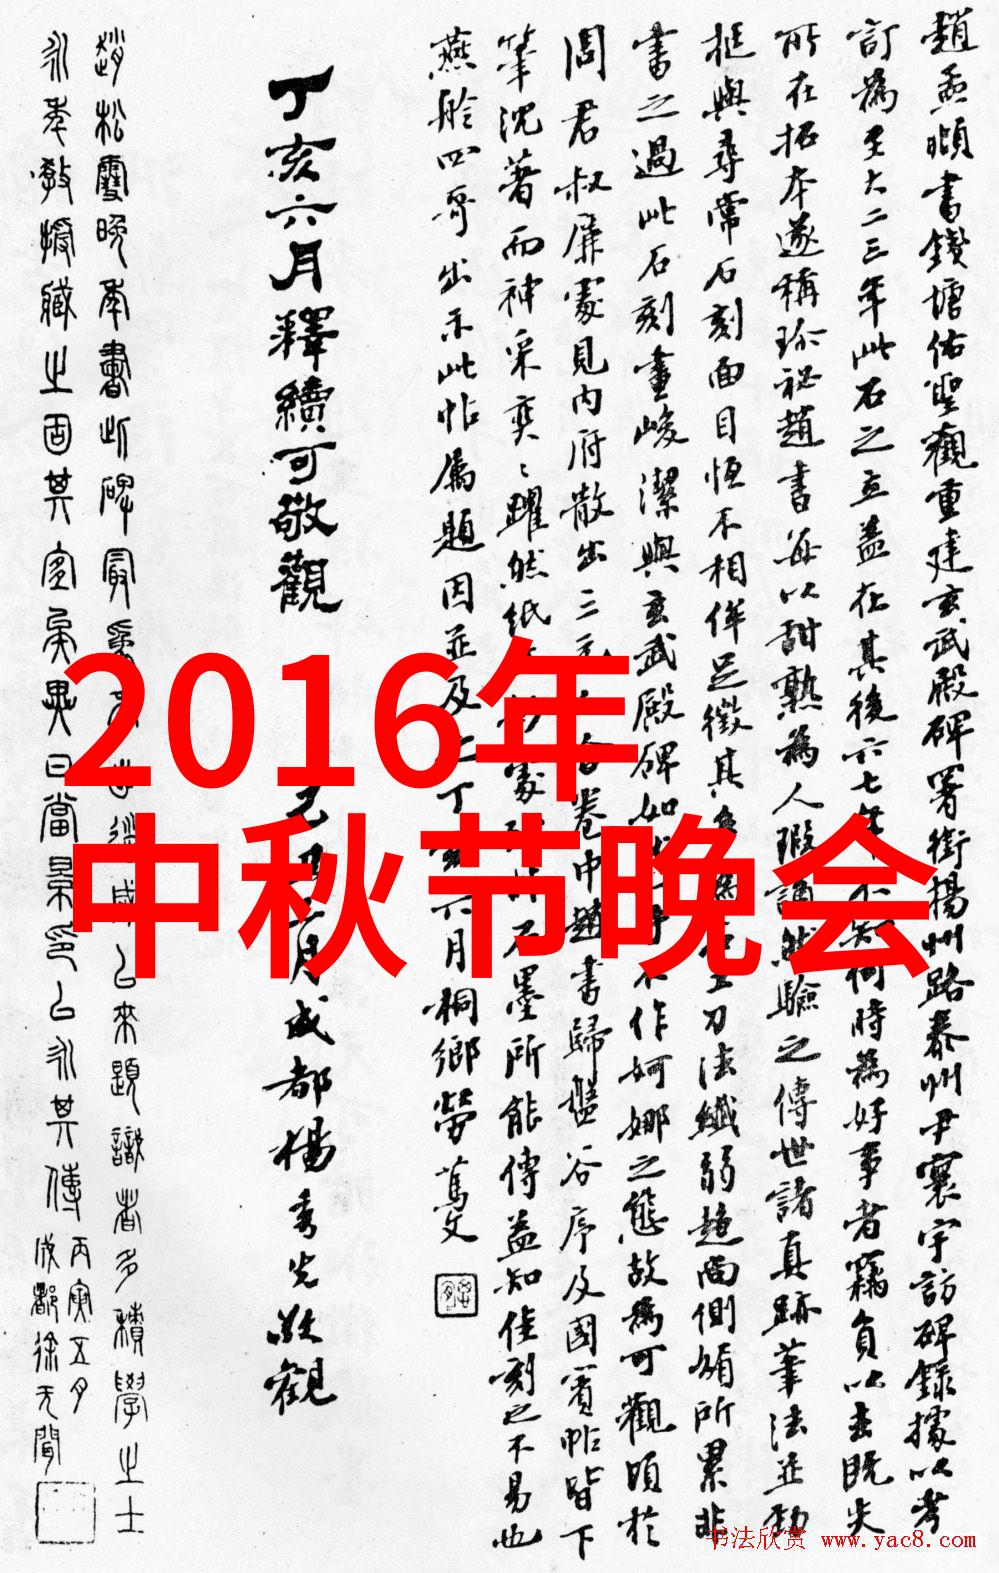 趙孟頫書錢塘佑聖觀重建玄武殿碑署銜揚州路泰州尹寰宇訪碑錄據以考
訂為至大二三年此石之立蓋在其後六七年不知何時為好事者竊負以去既失
所在拓本遂稱珍祕趙書每以甜熟為人瑕誚然驗之傳世諸真跡筆法並勁
挺與尋常石刻面目恒不相侔足徵其刀法纖弱趙面側媚所累非
書之過此石刻畫峻潔與玄武殿碑如作婀娜之態故為可觀頃於
周君叔廉處見內府散出三卷中趙書歸盤谷序及國賓帖皆下
筆沈著而神采奕奕躍然紙石墨所能傳益知佳刻之不易也
燕舲四哥出示此帖屬題因並及之丁亥六月桐鄉勞篤文
丁亥六月釋續可敬觀
月成都楊秀先敬觀
趙松雪晚年書此碑來題識者多積學之士
永年教授藏之固其宜矣異日當景印以永其傳
丙寅五月
成都徐无聞
2016年
中秋节晚会
书法欣赏 www.yac8.com